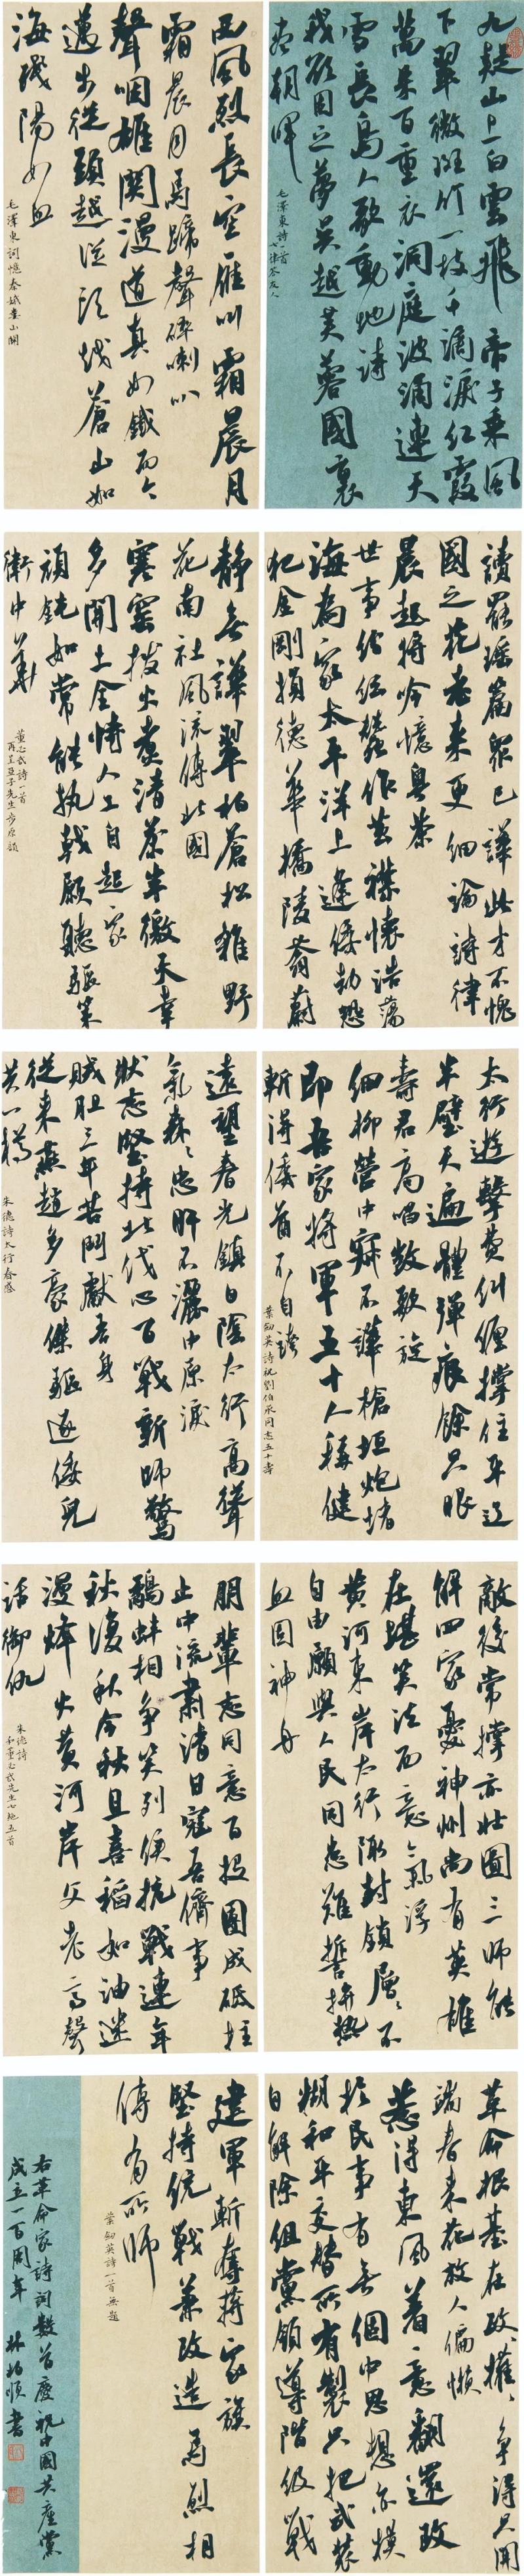 九疑山上白雲飛帝子乘風
下翠微斑竹一枝千滴淚紅霞
萬朵百重衣洞庭波涌連天
雪長島人歌動地詩
我欲因之夢吳越芙蓉國裏
盡朝暉
毛澤東詩一首
七律答友人
西風烈長空雁叫霜晨月
霜晨月馬蹄聲碎喇叭
聲咽雄關漫道真如鐵而今
邁步從頭越從頭越蒼山如
海殘陽如血
毛澤東詞憶秦娥婁山關
讀罷瑤篇眾已譁此才不愧
國之花老來更細論詩律
晨起將吟憶粵茶
世事作苴襟懷浩蕩
海為家太平洋上逢倭劫恐
犯金剛損德華橋陵蓊蔚
靜無譁翠柏蒼松雜野
花南社風流傳北國
寒窰撥火煮清茶年徼天幸
多開土全恃人工自起家
頑鈍如常能執戟願聽驅策
衛中華
董必武詩一首
再呈亞子先生步原韻
太行遊擊費糾纏撐住平遼
半壁天遍體彈痕餘只眼
壽君高唱數歌旋
細柳營中寂不譁槍垣炮堵
即吾家將軍五十人稱健
斬得倭酋不自誇
葉劍英詩祝劉伯承同志五十壽
遠望春光鎮日陰太行高聳
氣森森忠肝不灑中原淚
壯志堅持北伐心百戰新師驚
賊胆三年苦鬥獻吾身
從來燕趙多豪傑驅逐倭兒
共一樽
朱德詩太行春感
敵後常撐亦壯圖三師能
解四家憂神州尚有英雄
在堪笑法西意氣浮
黃河東岸太行陬封鎖層層不
自由願與人民同患難誓拚熱
血固神舟
朋輩志同意百投團成砥柱
止中流肅清日寇吾儕事
鷸蚌相爭笑列侯抗戰連年
秋復秋今秋且喜稻如油迷
漫烽火黃河岸父老高聲
話御仇
朱德詩
和董必武先生七絕五首
革命根基在政權權爭得只開
端春來花放人偏懶
惹得東風着意翻還政
於民事有無個中思想亦模
糊和平交替所有製只把武裝
自解除組黨領導階級戰
建軍斬奪蔣家旗
堅持統戰兼改造馬烈相
傳有所師
葉劍英詩一首無題
右革命家詩詞數首慶祝中國共產黨
成立一百周年 林柏順書